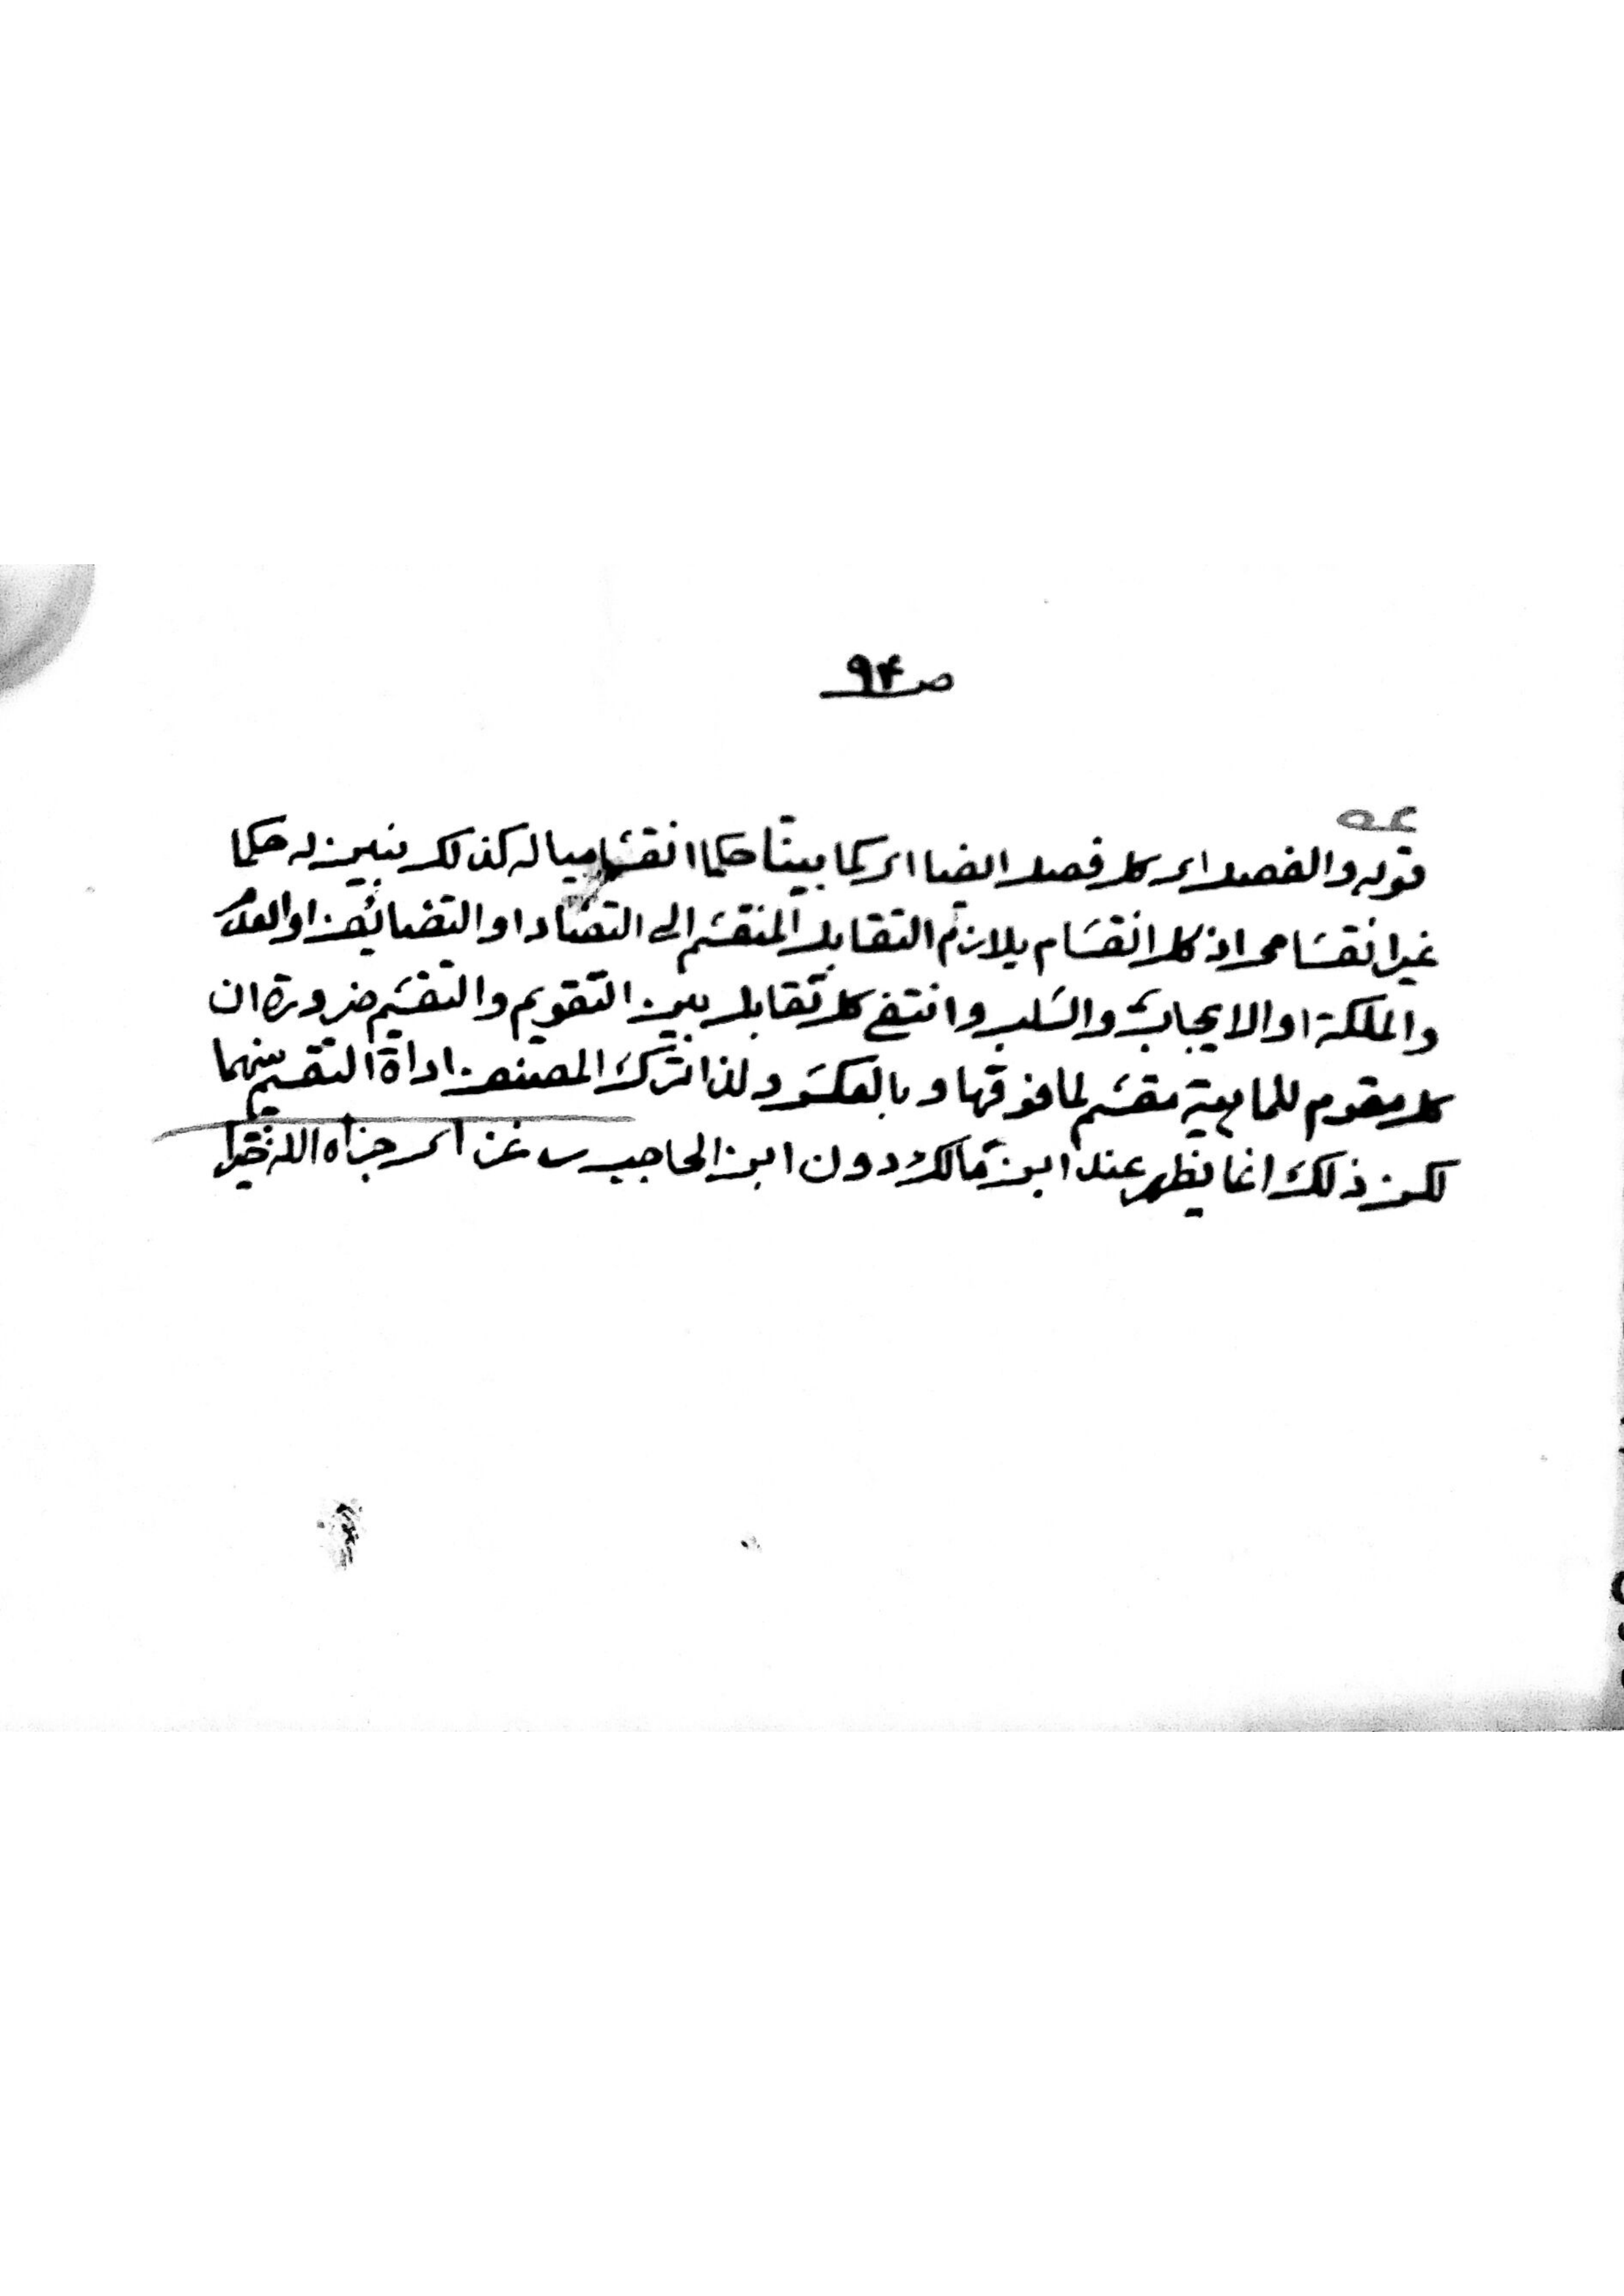 صـ ٩۴
قوله والفصل اى كل فصل ايضا اى كما بينا حكما انقساميا له كذلك نبين له حكما
غير انقسامى اذ كل انقسام يلازم التقابل المنقسم الى التضاد او التضائف او العدم
والملكة او الايجاب والسلب وانتفى كل تقابل بين التقويم والتقسيم ضرورة ان
كل مقوم للماهية مقسم لما فوقها وبالعكس ولذا ترك المصنف اداة التقسيم بينهما
لكن ذلك انما يظهر عند ابن مالك دون ابن الحاجب جزاه الله خيرا